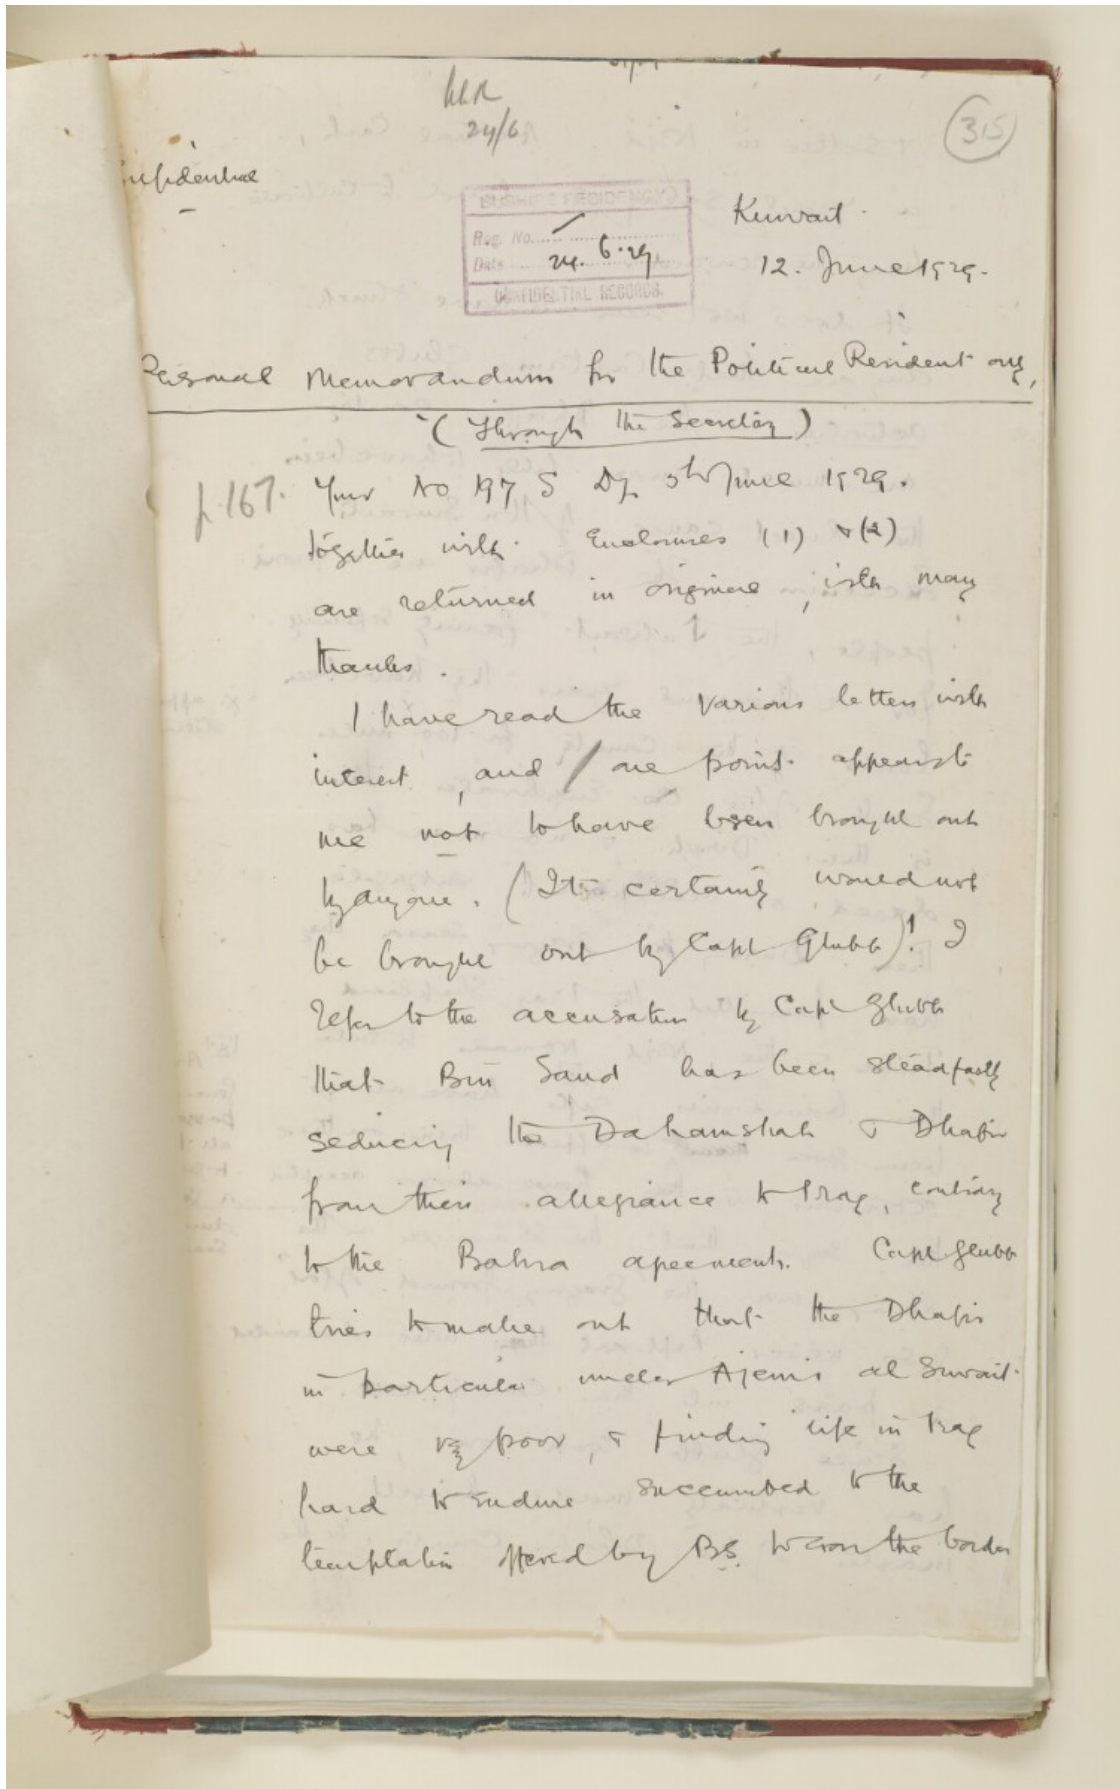 24/6
315
Confidential
BUSHIRE RESIDENCY
Reg. No.
Date 24.6.29
CONFIDENTIAL RECORDS.
Kuwait.
12. June 1929.
Personal Memorandum for the Political Resident only,
(Through the Secretary)
p. 167. Your No 197 S Dy 5th June 1929.
together with Enclosures (1) & (2)
are returned in original, with many
thanks.
I have read the various letters with
interest, and one point appears to
me not to have been brought out
by anyone. (It certainly would not
be brought out by Capt Glubb)! I
refer to the accusation by Capt Glubb
that Bin Saud has been steadfastly
seducing the Dahamshah & Dhafir
from their allegiance to Iraq, contrary
to the Bahra agreement. Capt Glubb
tries to make out that the Dhafir
in particular under Ajemi al Suwait
were very poor, & finding life in Iraq
hard to endure succumbed to the
temptation offered by BS. to cross the border